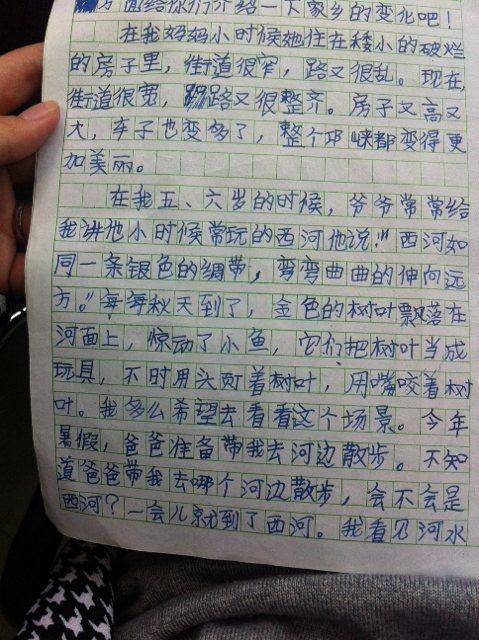 方面给你们介绍一下家乡的变化吧！
在我妈妈小时候她住在矮小的破烂
的房子里，街道很窄，路又很乱。现在，
街道很宽，路又很整齐。房子又高又
大，车子也变多了，整个邛崃都变得更
加美丽。
在我五、六岁的时候，爷爷常常给
我讲他小时候常玩的西河他说："西河如
同一条银色的绸带，弯弯曲曲的伸向远
方。"每每秋天到了，金色的树叶飘落在
河面上，惊动了小鱼，它们把树叶当成
玩具，不时用头顶着树叶，用嘴咬着树
叶。我多么希望去看看这个场景。今年
暑假，爸爸准备带我去河边散步。不知
道爸爸带我去哪个河边散步，会不会是
西河？一会儿就到了西河。我看见河水